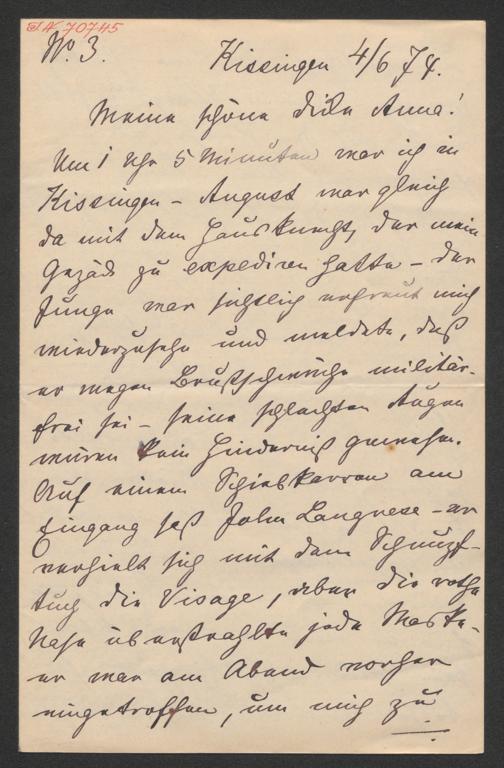 IN 70745
No. 3.
Kissingen 4/6 74.
Meine schöne dicke Anna!
Um 1 Uhr 5 Minuten war ich in
Kissingen – August war gleich
da mit dem Hausknecht, der mein
Gepäck zu expediren hatte – der
Junge war sichtlich erfreut mich
wiederzusehn und meldete, daß
er wegen Brustschwäche militär-
frei sei – seine schlechten Augen
wären kein Hinderniß gewesen.
Auf einem Schiebkarren am
Eingang saß John Langnese – er
verhielt sich mit dem Schnupf-
tuch die Visage, aber die rothe
Nase überstrahlte jede Maske.
er war am Abend vorher
eingetroffen, um mich zu